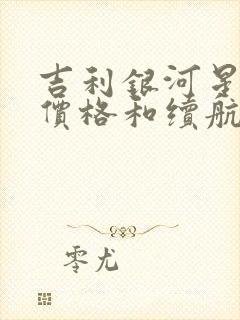 吉利銀河星
價格和續航
零尤